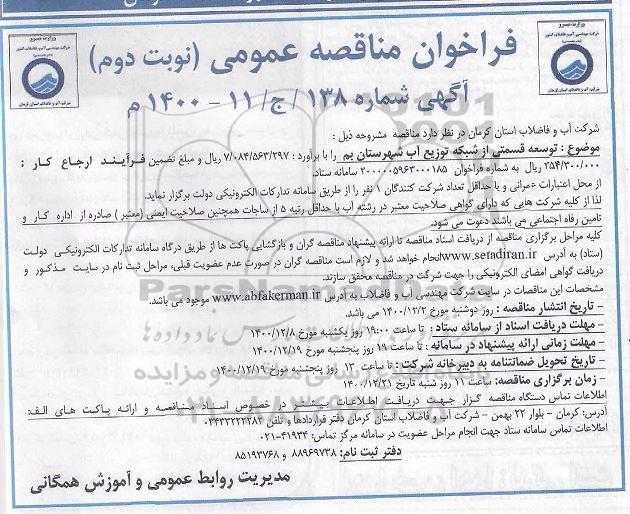 فراخوان مناقصه عمومی (نوبت دوم)
آگهی شماره ۱۳۸ /ج/ ۱۱ - ۱۴۰۰ م
شرکت آب و فاضلاب استان کرمان در نظر دارد مناقصه مشروحه ذیل :
موضوع : توسعه قسمتی از شبکه توزیع آب شهرستان بم را با برآورد : ۷/۰۸۴/۵۶۳/۲۹۷ ریال و مبلغ تضمین فرآیند ارجاع کار :
۳۵۴/۳۰۰/۰۰۰ ریال به شماره فراخوان ۲۰۰۰۰۰۵۹۶۳۰۰۰۱۸۵ سامانه ستاد.
از محل اعتبارات عمرانی و با حداقل تعداد شرکت کنندگان ۱ نفر را از طریق سامانه تدارکات الکترونیکی دولت برگزار نماید.
لذا از کلیه شرکت هایی که دارای گواهی صلاحیت معتبر در رشته آب با حداقل رتبه ۵ از ساجات همچنین صلاحیت ایمنی (معتبر ) صادره از اداره کار و
تامین رفاه اجتماعی می باشند دعوت می شود.
کلیه مراحل برگزاری مناقصه از دریافت اسناد مناقصه تا ارائه پیشنهاد مناقصه گران و بازگشایی پاکت ها از طریق درگاه سامانه تدارکات الکترونیکی دولت
(ستاد) به آدرس www.setadiran.ir انجام خواهد شد و لازم است مناقصه گران در صورت عدم عضویت قبلی، مراحل ثبت نام در سایت مذکور و
دریافت گواهی امضای الکترونیکی را جهت شرکت در مناقصه محقق سازند.
مشخصات این مناقصات در سایت شرکت مهندسی آب و فاضلاب به آدرس www.abfakerman.ir موجود می باشد.
– تاریخ انتشار مناقصه : روز دوشنبه مورخ ۱۴۰۰/۱۲/۲ می باشد.
– مهلت دریافت اسناد از سامانه ستاد : تا ساعت ۱۹:۰۰ روز یکشنبه مورخ ۱۴۰۰/۱۲/۸
– مهلت زمانی ارائه پیشنهاد در سامانه : تا ساعت ۱۹ روز پنجشنبه مورخ ۱۴۰۰/۱۲/۱۹
– تاریخ تحویل ضمانتنامه به دبیرخانه شرکت: تا ساعت ۱۳ روز پنجشنبه مورخ ۱۴۰۰/۱۲/۱۹
– زمان برگزاری مناقصه: ساعت ۱۱ روز شنبه تاریخ ۱۴۰۰/۱۲/۲۱
اطلاعات تماس دستگاه مناقصه گزار جهت دریافت اطلاعات بیشتر در خصوص اسناد مناقصه و ارائه پاکت های الف:
آدرس: کرمان – بلوار ۲۲ بهمن – شرکت آب و فاضلاب استان کرمان دفتر قراردادها و تلفن ۰۳۴۳۳۲۲۲۲۸۲
اطلاعات تماس سامانه ستاد جهت انجام مراحل عضویت در سامانه مرکز تماس: ۴۱۹۳۴-۰۲۱
دفتر ثبت نام: ۸۸۹۶۹۷۳۸ و ۸۵۱۹۳۷۶۸
مدیریت روابط عمومی و آموزش همگانی